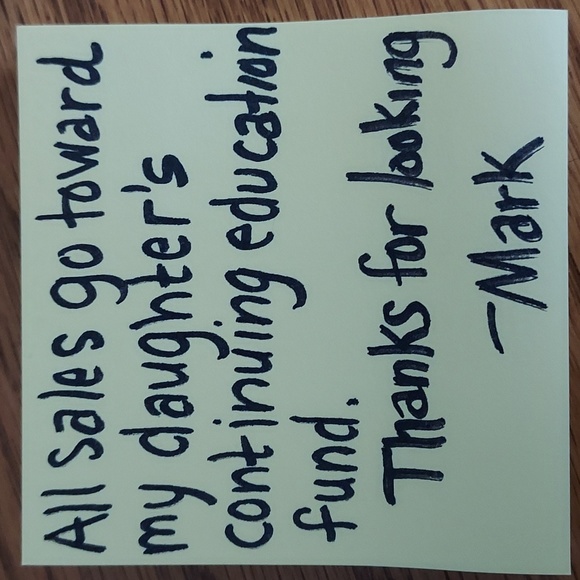 All Sales go toward
my daughter's
continuing education
fund.
Thanks for looking
-Mark